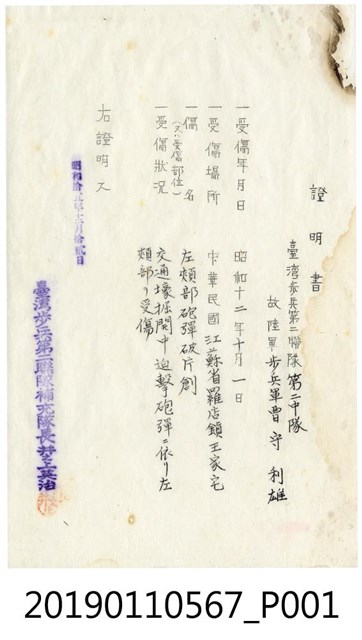 證明書
臺湾歩兵第二聯隊第二中隊
故陸軍歩兵軍曹 守 利雄
一受傷年月日 昭和十二年十月一日
一受傷場所 中華民國江蘇省羅店鎮王家宅
一傷名 左頬部砲彈破片創
(又ハ受傷部位)
一受傷状況 交通壕掘開中迫撃砲彈ニ依リ左
頬部ヲ受傷
右證明ス
昭和拾五年十一月拾弍日
臺湾歩兵第二聯隊補充隊長
20190110567_P001